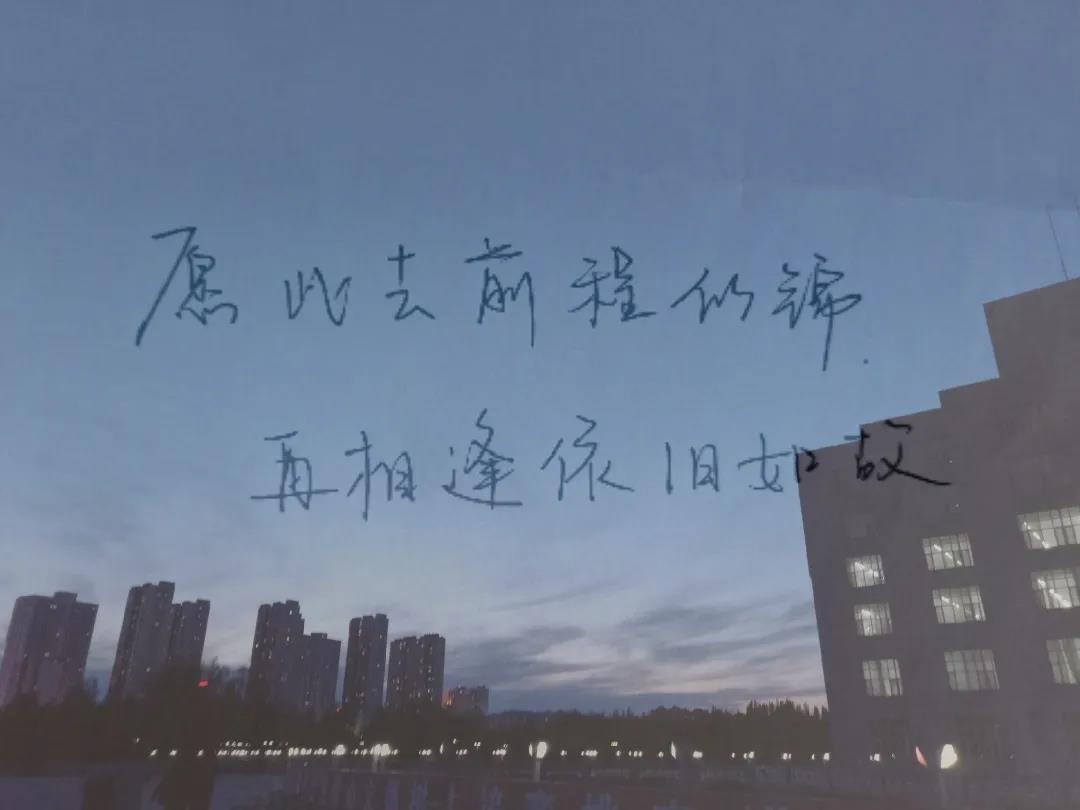 愿此去前程似锦.
再相逢依旧如故